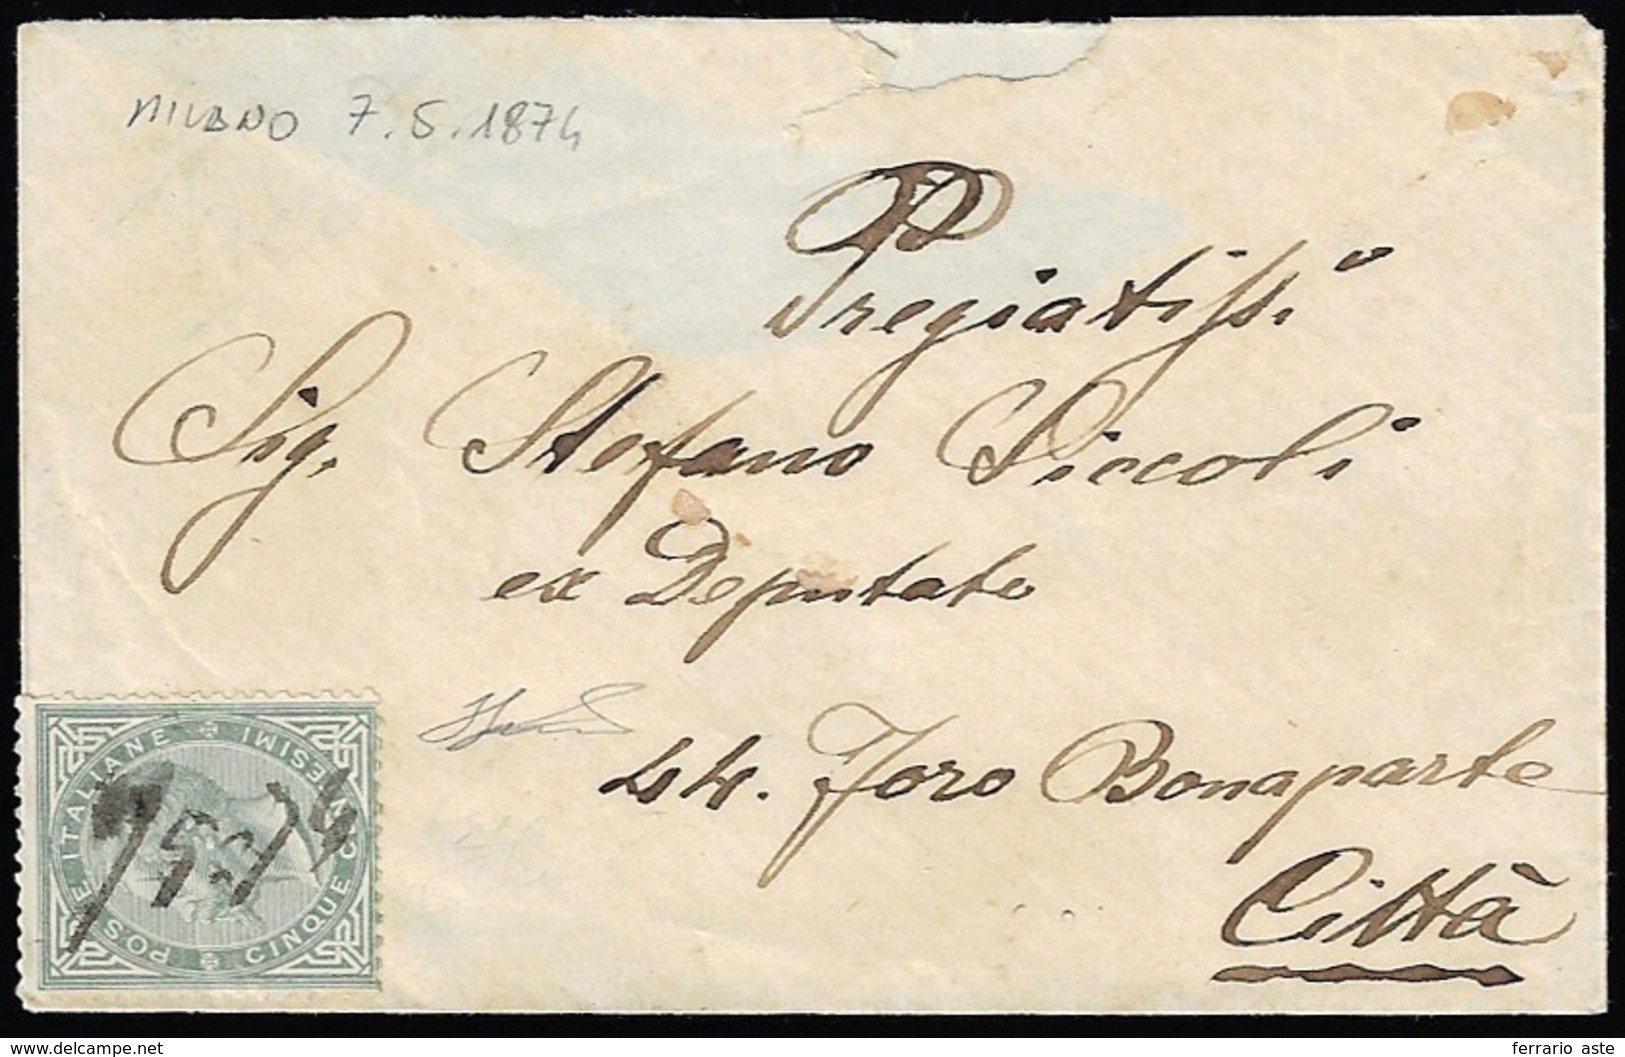 MILANO 7.5.1874
Pregiatiss.o
Sig. Stefano Piccoli
ex Deputato
44. Foro Bonaparte
Città
POSTE ITALIANE
CINQUE CENTESIMI
7 5 74
delcampe.net
ferrario aste